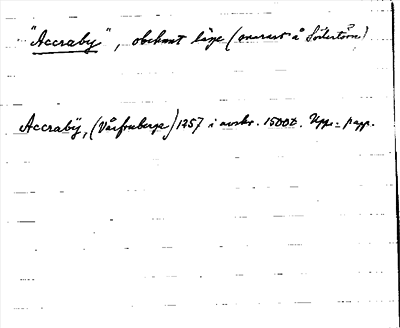 "Accraby", obekant läge (snarast å Södertörn)
Accraby, (Vårfruberga) 1257 i avskr. 1500t. Upps. papp.